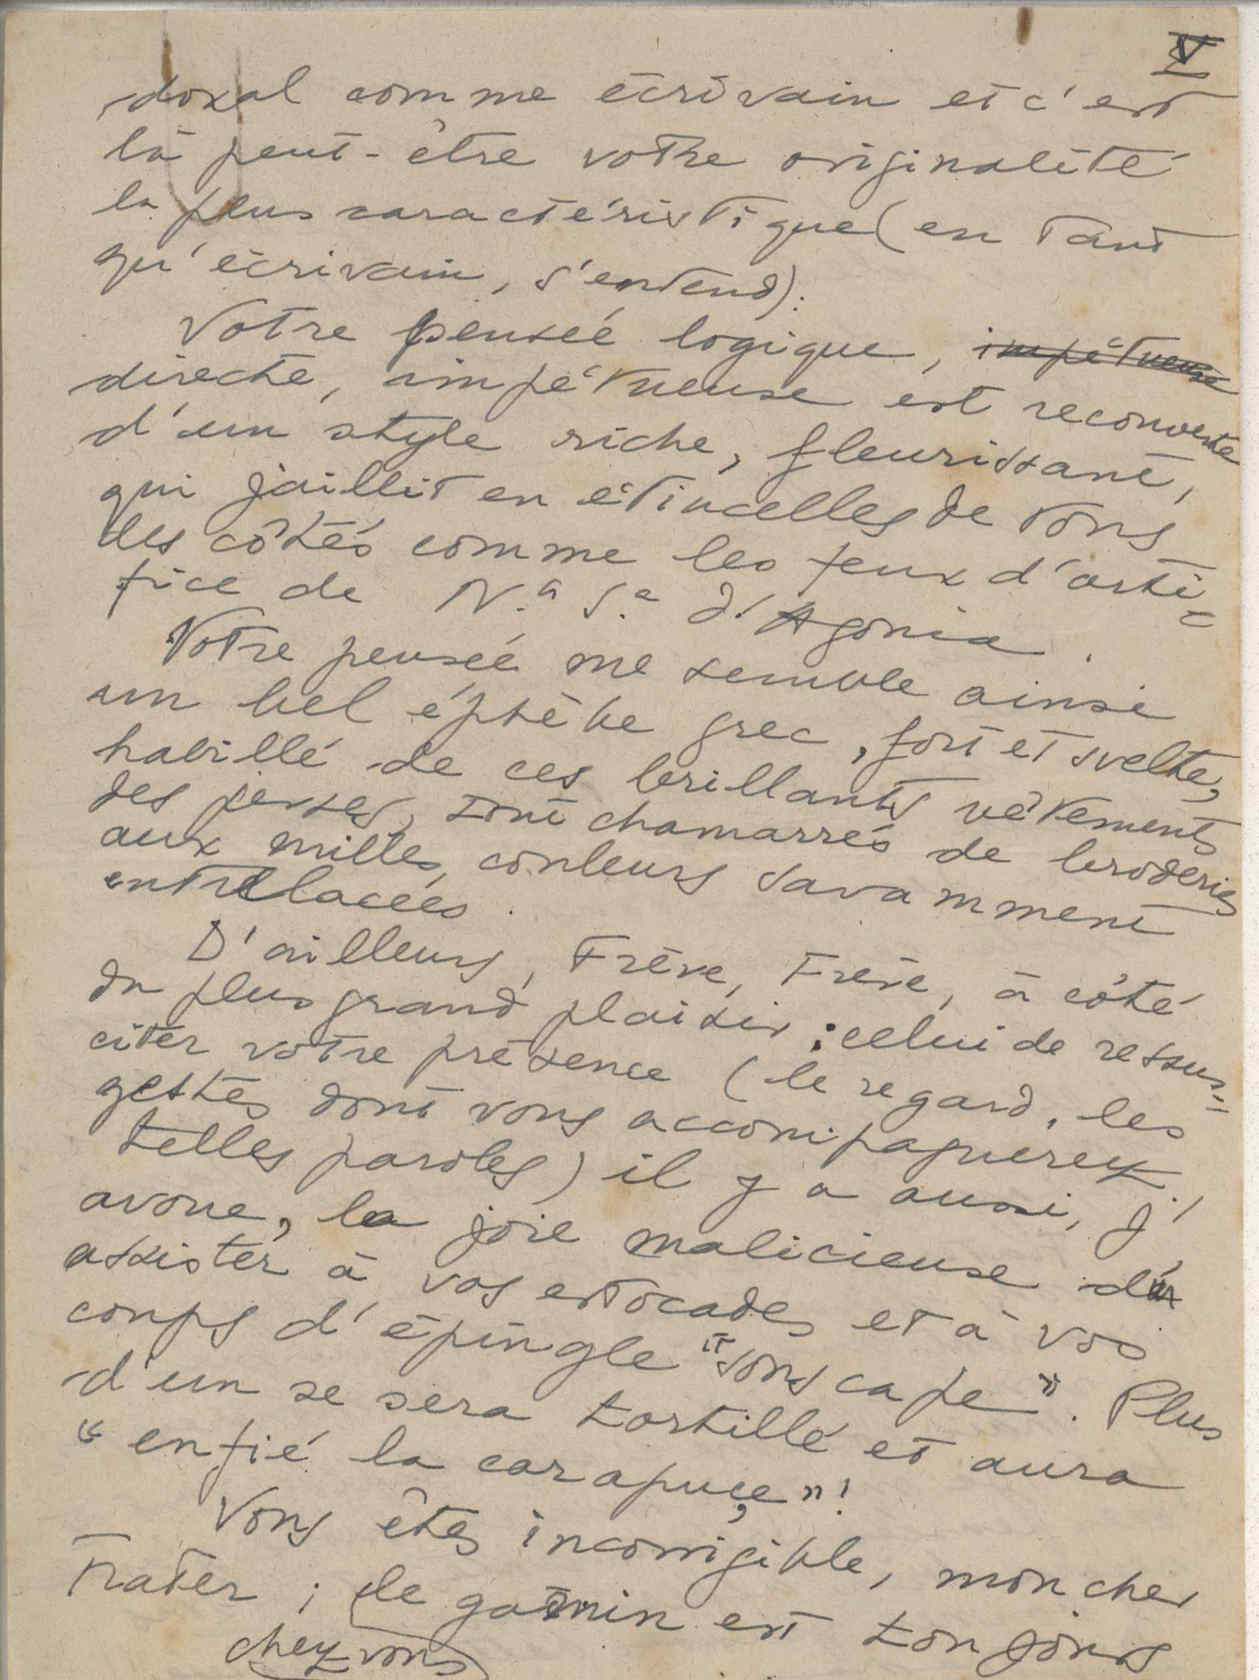 V
doxal comme écrivain et c'est
là peut-être votre originalité
la plus caractéristique (en tant
qu'écrivain, s'entend).
Votre pensée logique, impétueuse
directe, impétueuse est recouverte
d'un style riche, fleurissant,
qui jaillit en étincelles de tous
les côtés comme les feux d'arti=
fice de N.ª S.ª d'Agonia.
Votre pensée me semble ainsi
un bel éphèbe grec, fort et svelte,
habillé de ces brillants vêtements
des perses, tout chamarrés de broderies
aux milles couleurs savamment
entrelacées.
D'ailleurs, Frère, Frère, à côté
du plus grand plaisir: celui de ressus=
citer votre présence (le regard, les
gestes dont vous accompagnerez
telles paroles) il y a aussi, j'
avoue, la joie malicieuse d'
assister à vos estocades et à vos
coups d'épingle "sous cape". Plus
d'un se sera tortillé et aura
"enfié la carapuçe"!
Vous êtes incorrigible, mon cher
Frater; le gamin est toujours
chez vous